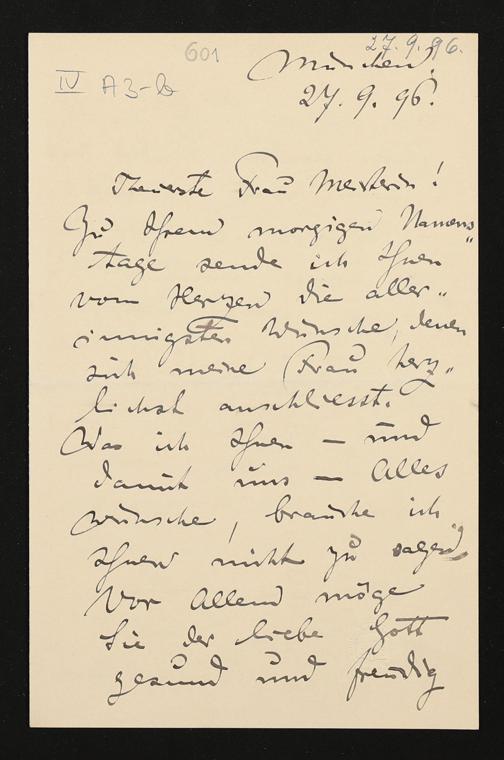 601
27.9.96.
IV A3-b
München!
27.9.96.
Theuerste Frau Meisterin!
Zu Ihrem morgigen Namens„
tage sende ich Ihnen
vom Herzen die aller„
innigsten Wünsche, denen
sich meine Frau herz„
lichst anschliesst.
Was ich Ihnen – und
damit uns – Alles
wünsche, brauche ich
Ihnen nicht zu sagen.
Vor Allem möge
Sie der liebe Gott
gesund und freudig